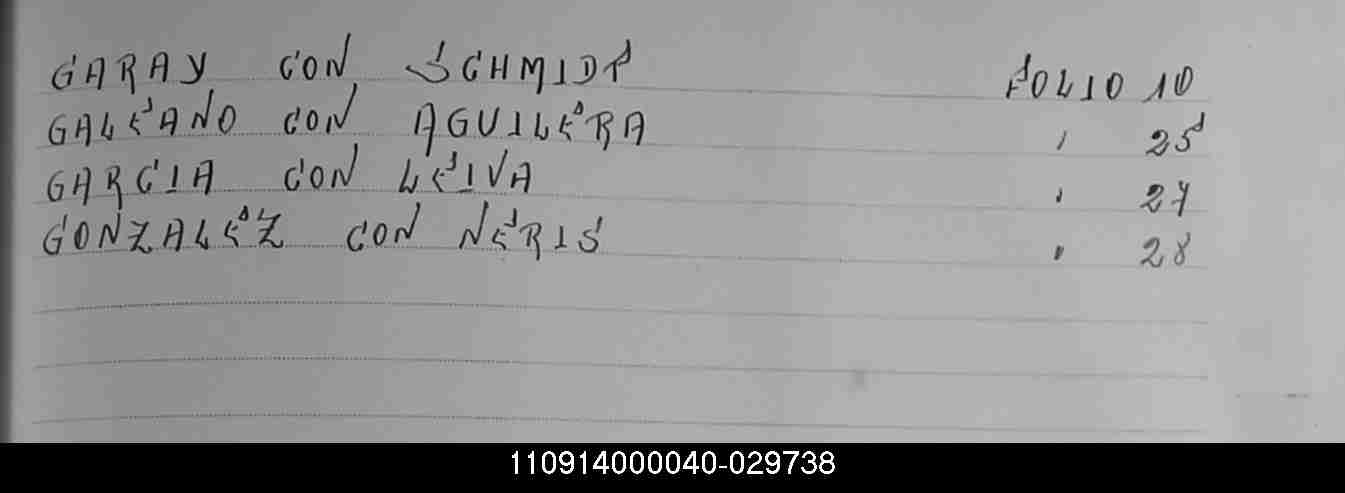 GARAY CON SCHMIDT FOLIO 10
GALEANO CON AGUILERA " 25
GARCIA CON LEIVA " 27
GONZALEZ CON NERIS " 28
110914000040-029738